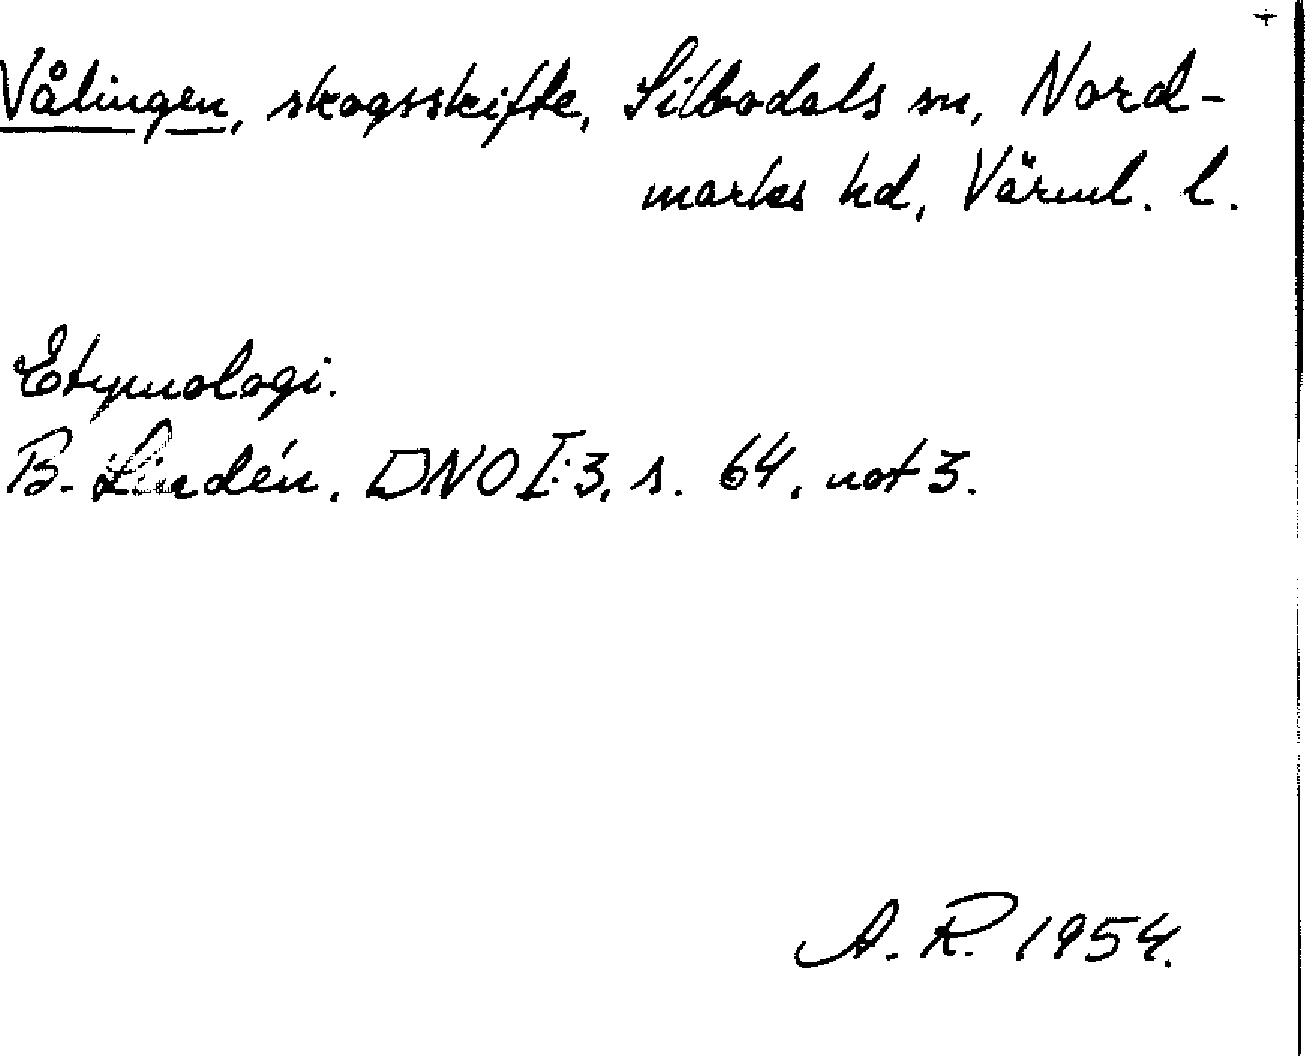 +
Vålingen, skogsskifte, Silbodals sn, Nord-
marks hd, Värml. l.
Etymologi.
B. Lindén, DNO I:3, s. 64, not 3.
A. R. 1954.